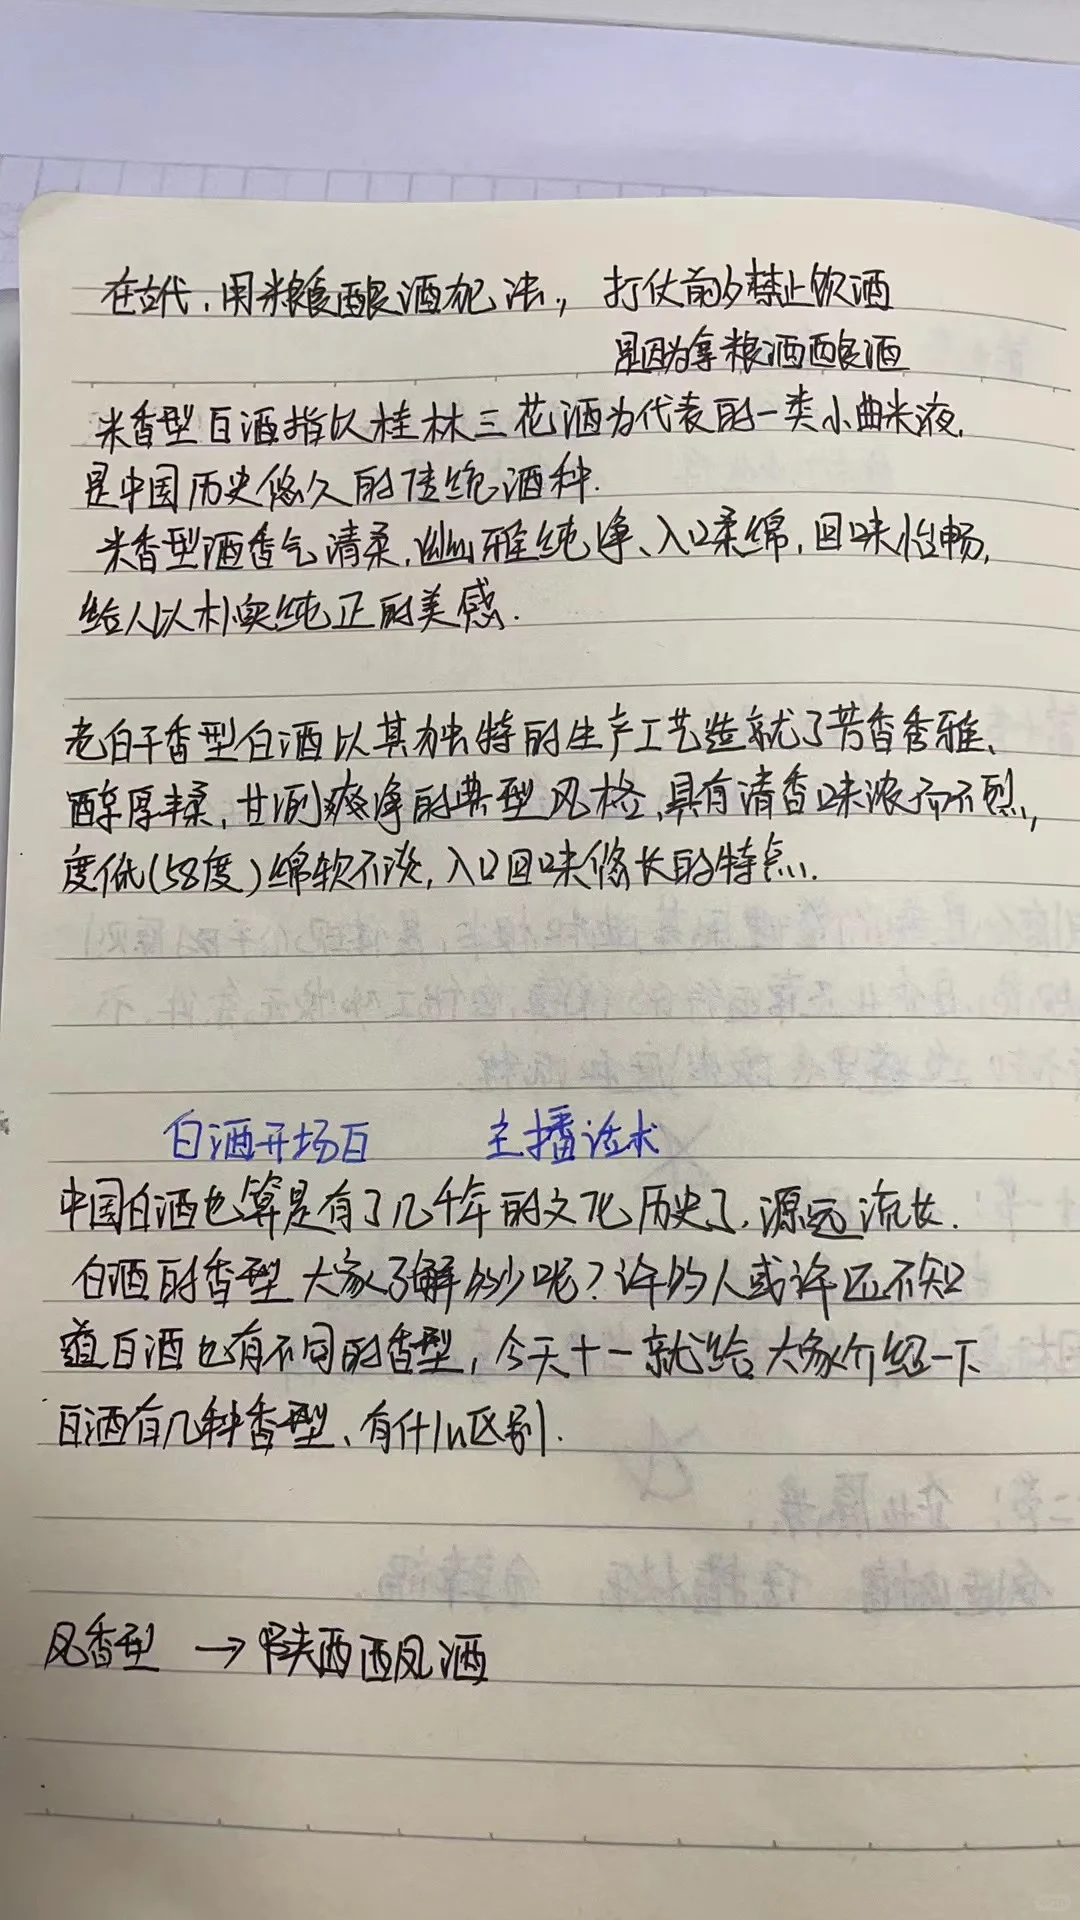 在古代，用粮食酿酒犯法， 打仗前夕禁止饮酒
是因为拿粮酒酿酒
米香型白酒指以桂林三花酒为代表的一类小曲米液，
是中国历史悠久的传统酒种.
米香型酒香气清柔，幽雅纯净、入口柔绵，回味怡畅，
给人以朴实纯正的美感.
老白干香型白酒以其独特的生产工艺造就了芳香秀雅、
醇厚柔，甘洌爽净的典型风格，具有清香味浓而不烈，
度低(58度)绵软不淡，入口回味悠长的特点.
白酒开场白 主播话术
中国白酒也算是有了几千年的文化历史了，源远流长.
白酒的香型大家了解多少呢？许多人或许还不知
道白酒也有不同的香型，今天十一就给大家介绍一下
白酒有几种香型、有什么区别.
凤香型 → 陕西西凤酒